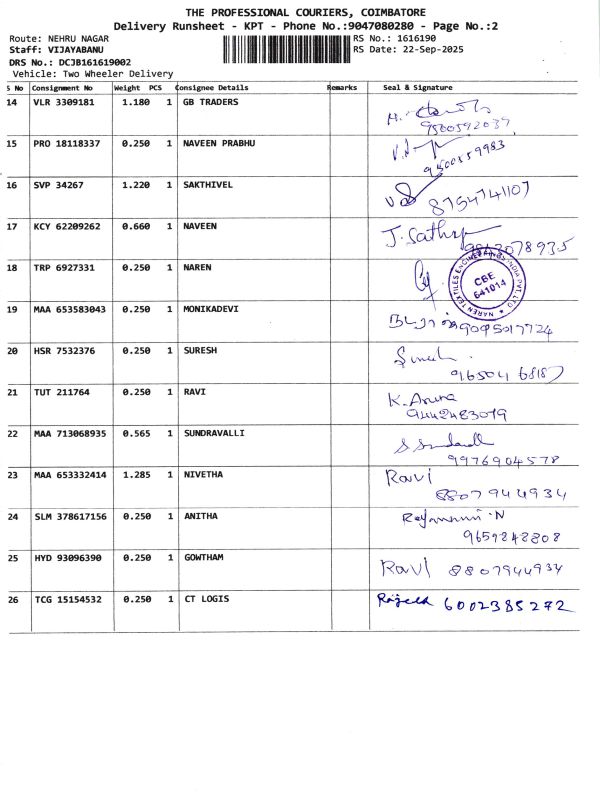 THE PROFESSIONAL COURIERS, COIMBATORE
Delivery Runsheet - KPT - Phone No.:9047080280 - Page No.:2
Route: NEHRU NAGAR RS No.: 1616190
Staff: VIJAYABANU RS Date: 22-Sep-2025
DRS No.: DCJB161619002
Vehicle: Two Wheeler Delivery
S No Consignment No Weight PCS Consignee Details Remarks Seal & Signature
14 VLR 3309181 1.180 1 GB TRADERS
9500592037
15 PRO 18118337 0.250 1 NAVEEN PRABHU
9500359983
16 SVP 34267 1.220 1 SAKTHIVEL
8754741107
17 KCY 62209262 0.660 1 NAVEEN J. Sathya
18 TRP 6927331 0.250 1 NAREN
NAREN TEXTILES ENGINEERING INDIA PVT LTD
CBE
641014
19 MAA 653583043 0.250 1 MONIKADEVI
9095017724
20 HSR 7532376 0.250 1 SURESH Suresh
21 TUT 211764 0.250 1 RAVI K. Aruna
9442483079
22 MAA 713068935 0.565 1 SUNDRAVALLI
9976904578
23 MAA 653332414 1.285 1 NIVETHA Ravi
8807944934
24 SLM 378617156 0.250 1 ANITHA
9659242808
25 HYD 93096390 0.250 1 GOWTHAM Ravi 8807944934
26 TCG 15154532 0.250 1 CT LOGIS 6002385272